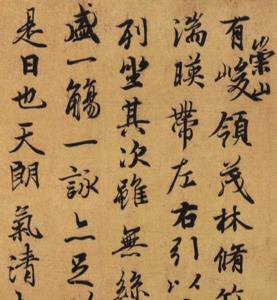 崇山
有峻領茂林脩竹
湍暎帶左右引以
列坐其次雖無絲
盛一觴一詠亦足
是日也天朗氣清